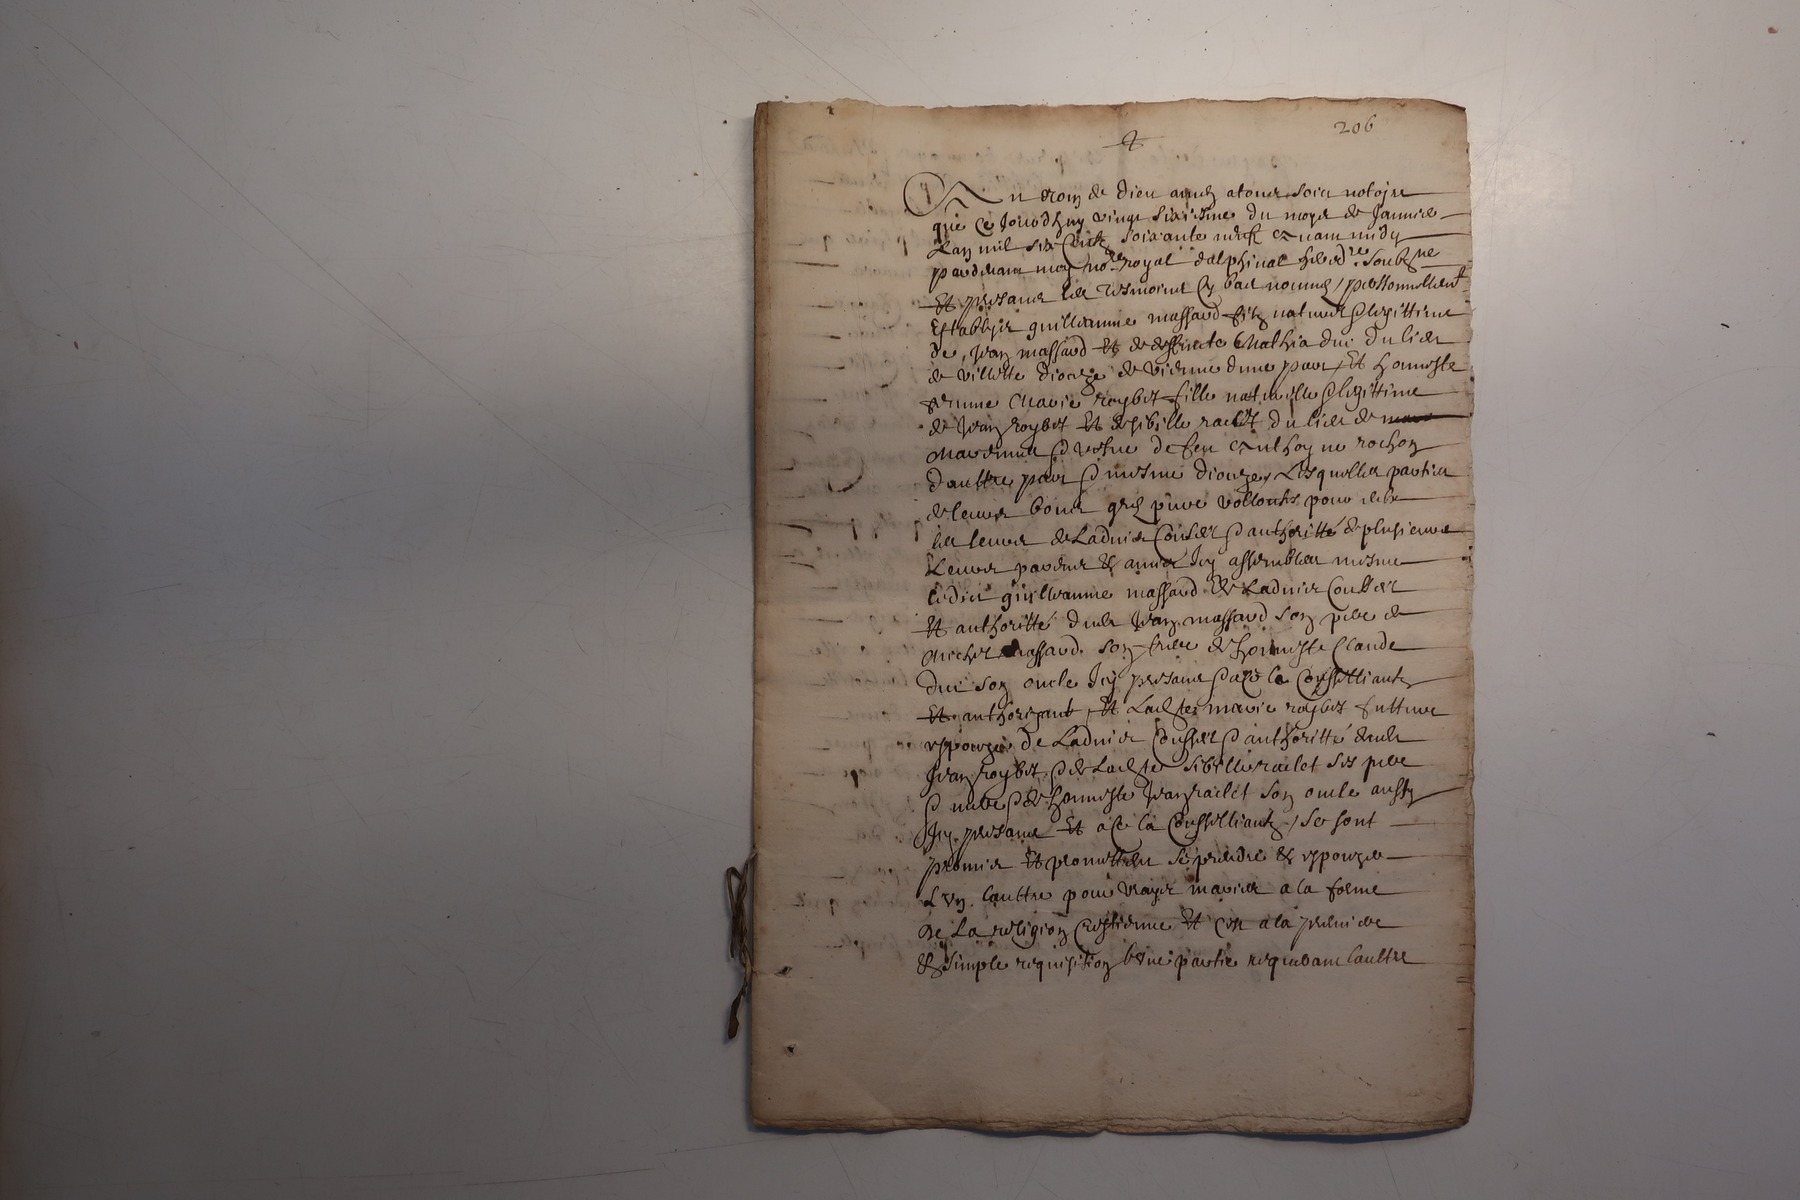 206
Au nom de dieu amen a tous soict notoire
que ce Jourdhuy vingt sixiesme du moys de Janvier
Lan mil six Centz soixante neuf avant midy
pardevant moy no.re royal dalphinal hered.re soubz.ne
Et presants les tesmoins cy bas nommes / personnellem.t
Establys guilleaume massard filz naturel & legittime
de Jean massard Et de deffuncte Mathia duc du lieu
de villette dioceze de vienne dune part / Et honneste
femme Marie roybet fille naturelle & legittime
de Jean roybet Et de sibille raclet du lieu de
& vefve de feu Anthoyne rochon
daultre part & mesme dioceze / Lesquelles parties
de leurs bons grés pure vollontés pour elles
les leurs de Ladvis Conseil & authoritté de plusieurs
Leurs parens & amis Icy assembles mesme
ledict guilleaume massard de Ladvis Conseil
Et authoritté dudt Jean massard son pere de
Michel massard son frere & honneste Claude
duc son oncle Icy presants & a ce le Conseilliantz
Et authorisant, Et Ladte marie roybet future
espouze de Ladvis Conseil & authoritté dudt
Jean roybet & de Ladte sibille raclet ses pere
& mere & de honneste Jean raclet son oncle aussy
Icy presants Et a ce la Conseilliantz / Se sont
promis Et promettent se prendre & espouzer
Lun laultre pour vrays maries a la forme
de La religion Crestienne Et Ce a la premiere
& simple requisition lune partie requerant laultre